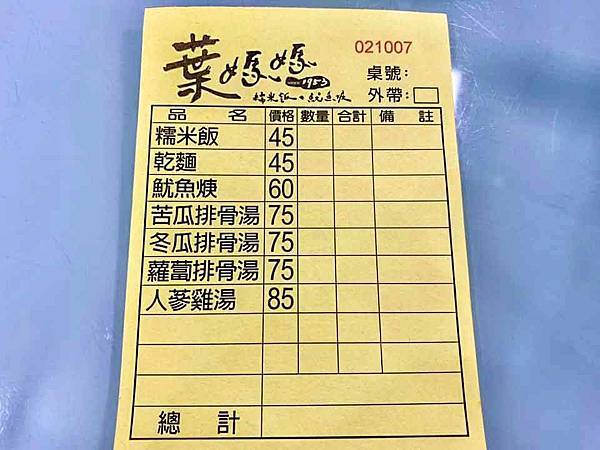 021007
葉媽媽 1953
糯米飯・魷魚焿
桌號:
外帶:
品名 價格 數量 合計 備註
糯米飯 45
乾麵 45
魷魚焿 60
苦瓜排骨湯 75
冬瓜排骨湯 75
蘿蔔排骨湯 75
人蔘雞湯 85
總計